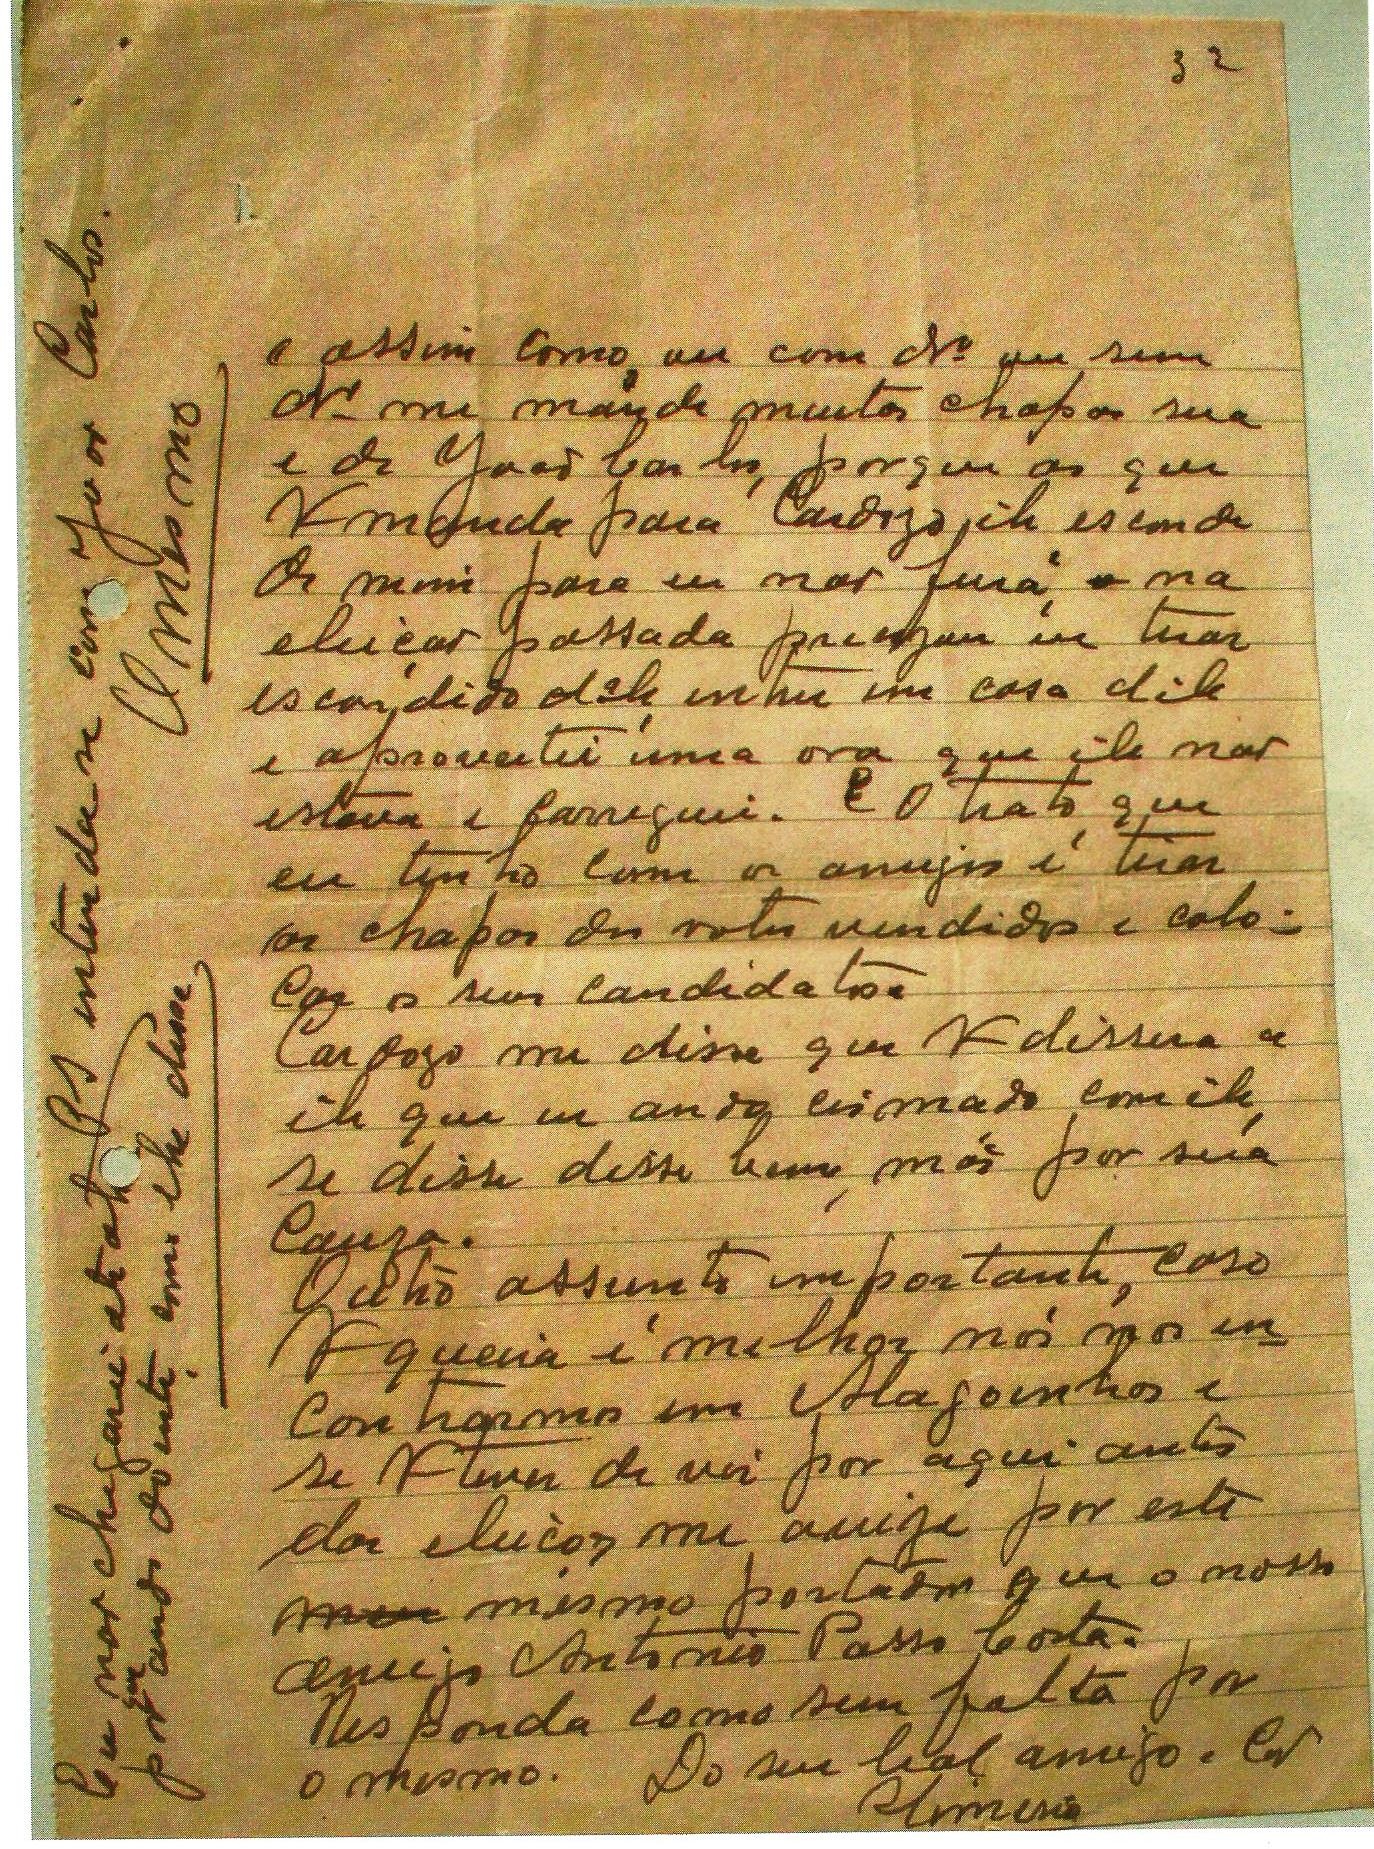 32
e assim como, ou com Nº ou sem
Nº me mande muntas chapas sua
e de João Carlos, porque as que
V manda para Cardozo ile esconde
de mim para eu nao furá, na
eleiçao passada precizou eu tirar
escondido dele, entrei em casa dile
e aproveitei uma ora que ile nao
estava e carreguei. E O trato que
eu tenho com os amigos é tirar
as chapas dos votos vendidos e colo-
car os seus candidatos
Cardozo me disse que V dissera a
ile que eu ando cismado com ile,
se disse disse bem, mas por sua
Cauza.
Outro assunto importante, caso
V queira é melhor nós nos en-
contrarmos em Alagoinhas e
se V tever de vir por aqui antes
das eleiçoes me avize por este
mesmo portador que o nosso
amigo Antonio Passo Costa.
Responda como sem falta por
o mesmo. Do seu leal amigo e Cor
PS intenda se com Joao Carlos.
O mesmo
Eu nao cheguei até ahi
por que ando doente como lhe disse.